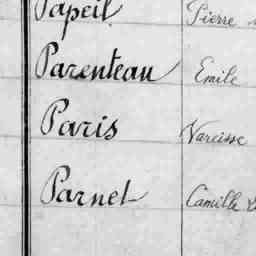 Papeil Pierre
Parenteau Emile
Paris Narcisse
Parnet Camille